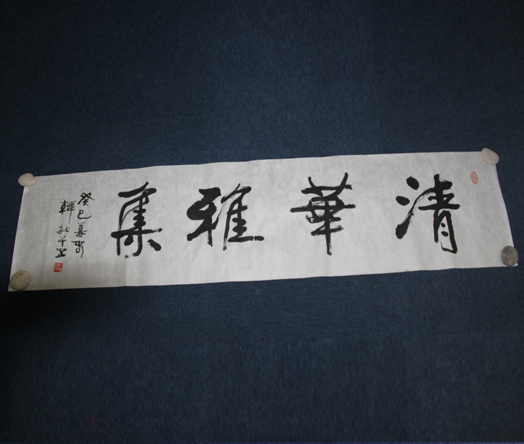 清華雅集
癸巳暮春
韓秋平書